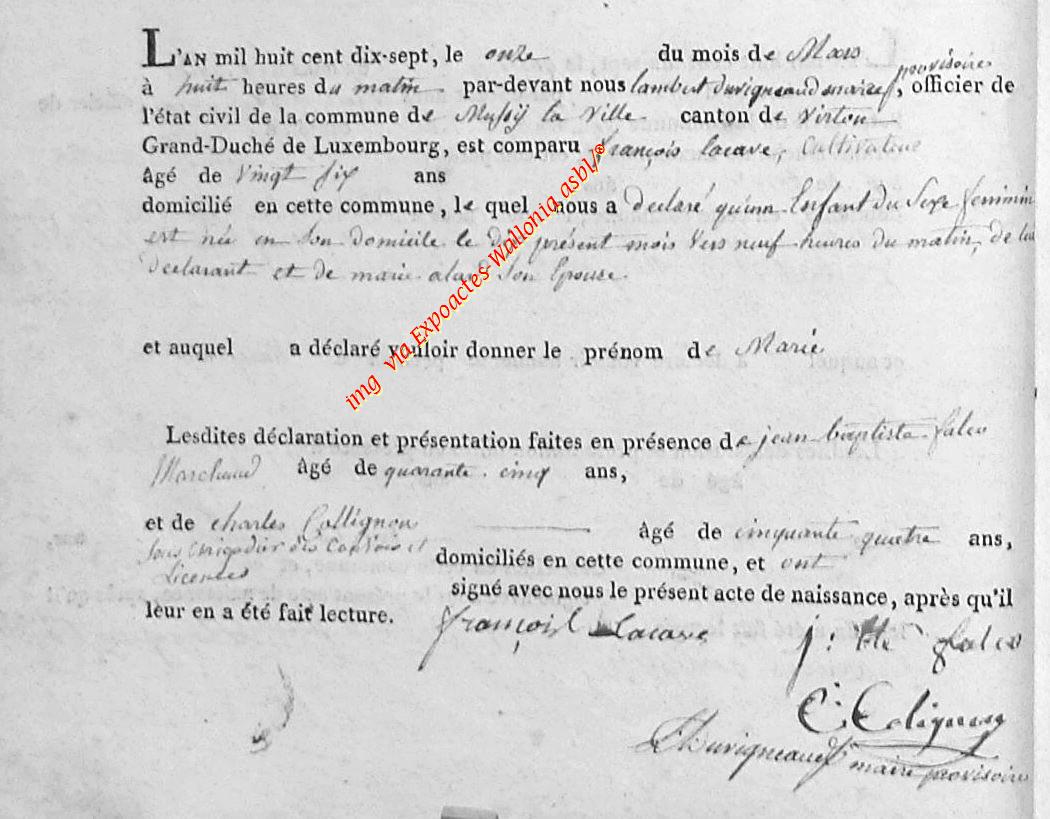 L'AN mil huit cent dix-sept, le onze du mois de Mars
provisoire
à huit heures du matin par-devant nous lambert duvigneaud maire, officier de
l'état civil de la commune de Mussÿ la Ville canton de Virton
Grand-Duché de Luxembourg, est comparu françois lacave, Cultivateur
âgé de Vingt six ans
domicilié en cette commune, le quel nous a declaré qu'un Enfant du Sexe feminin
est née en son domicile le dix présent mois vers neuf heures du matin, de lui
declarant et de marie son Epouse.
et auquel a déclaré vouloir donner le prénom de Marie
Lesdites déclaration et présentation faites en présence de jean baptiste
Marchand âgé de quarante cinq ans,
et de charles Collignon âgé de cinquante quatre ans,
sous brigadier des et
domiciliés en cette commune, et ont
Licences
signé avec nous le présent acte de naissance, après qu'il
leur en a été fait lecture.
françois Lacave
j: Bte
C: Colignon
Duvigneaud maire provisoire
img via Expoactes-Wallonia asbl/®